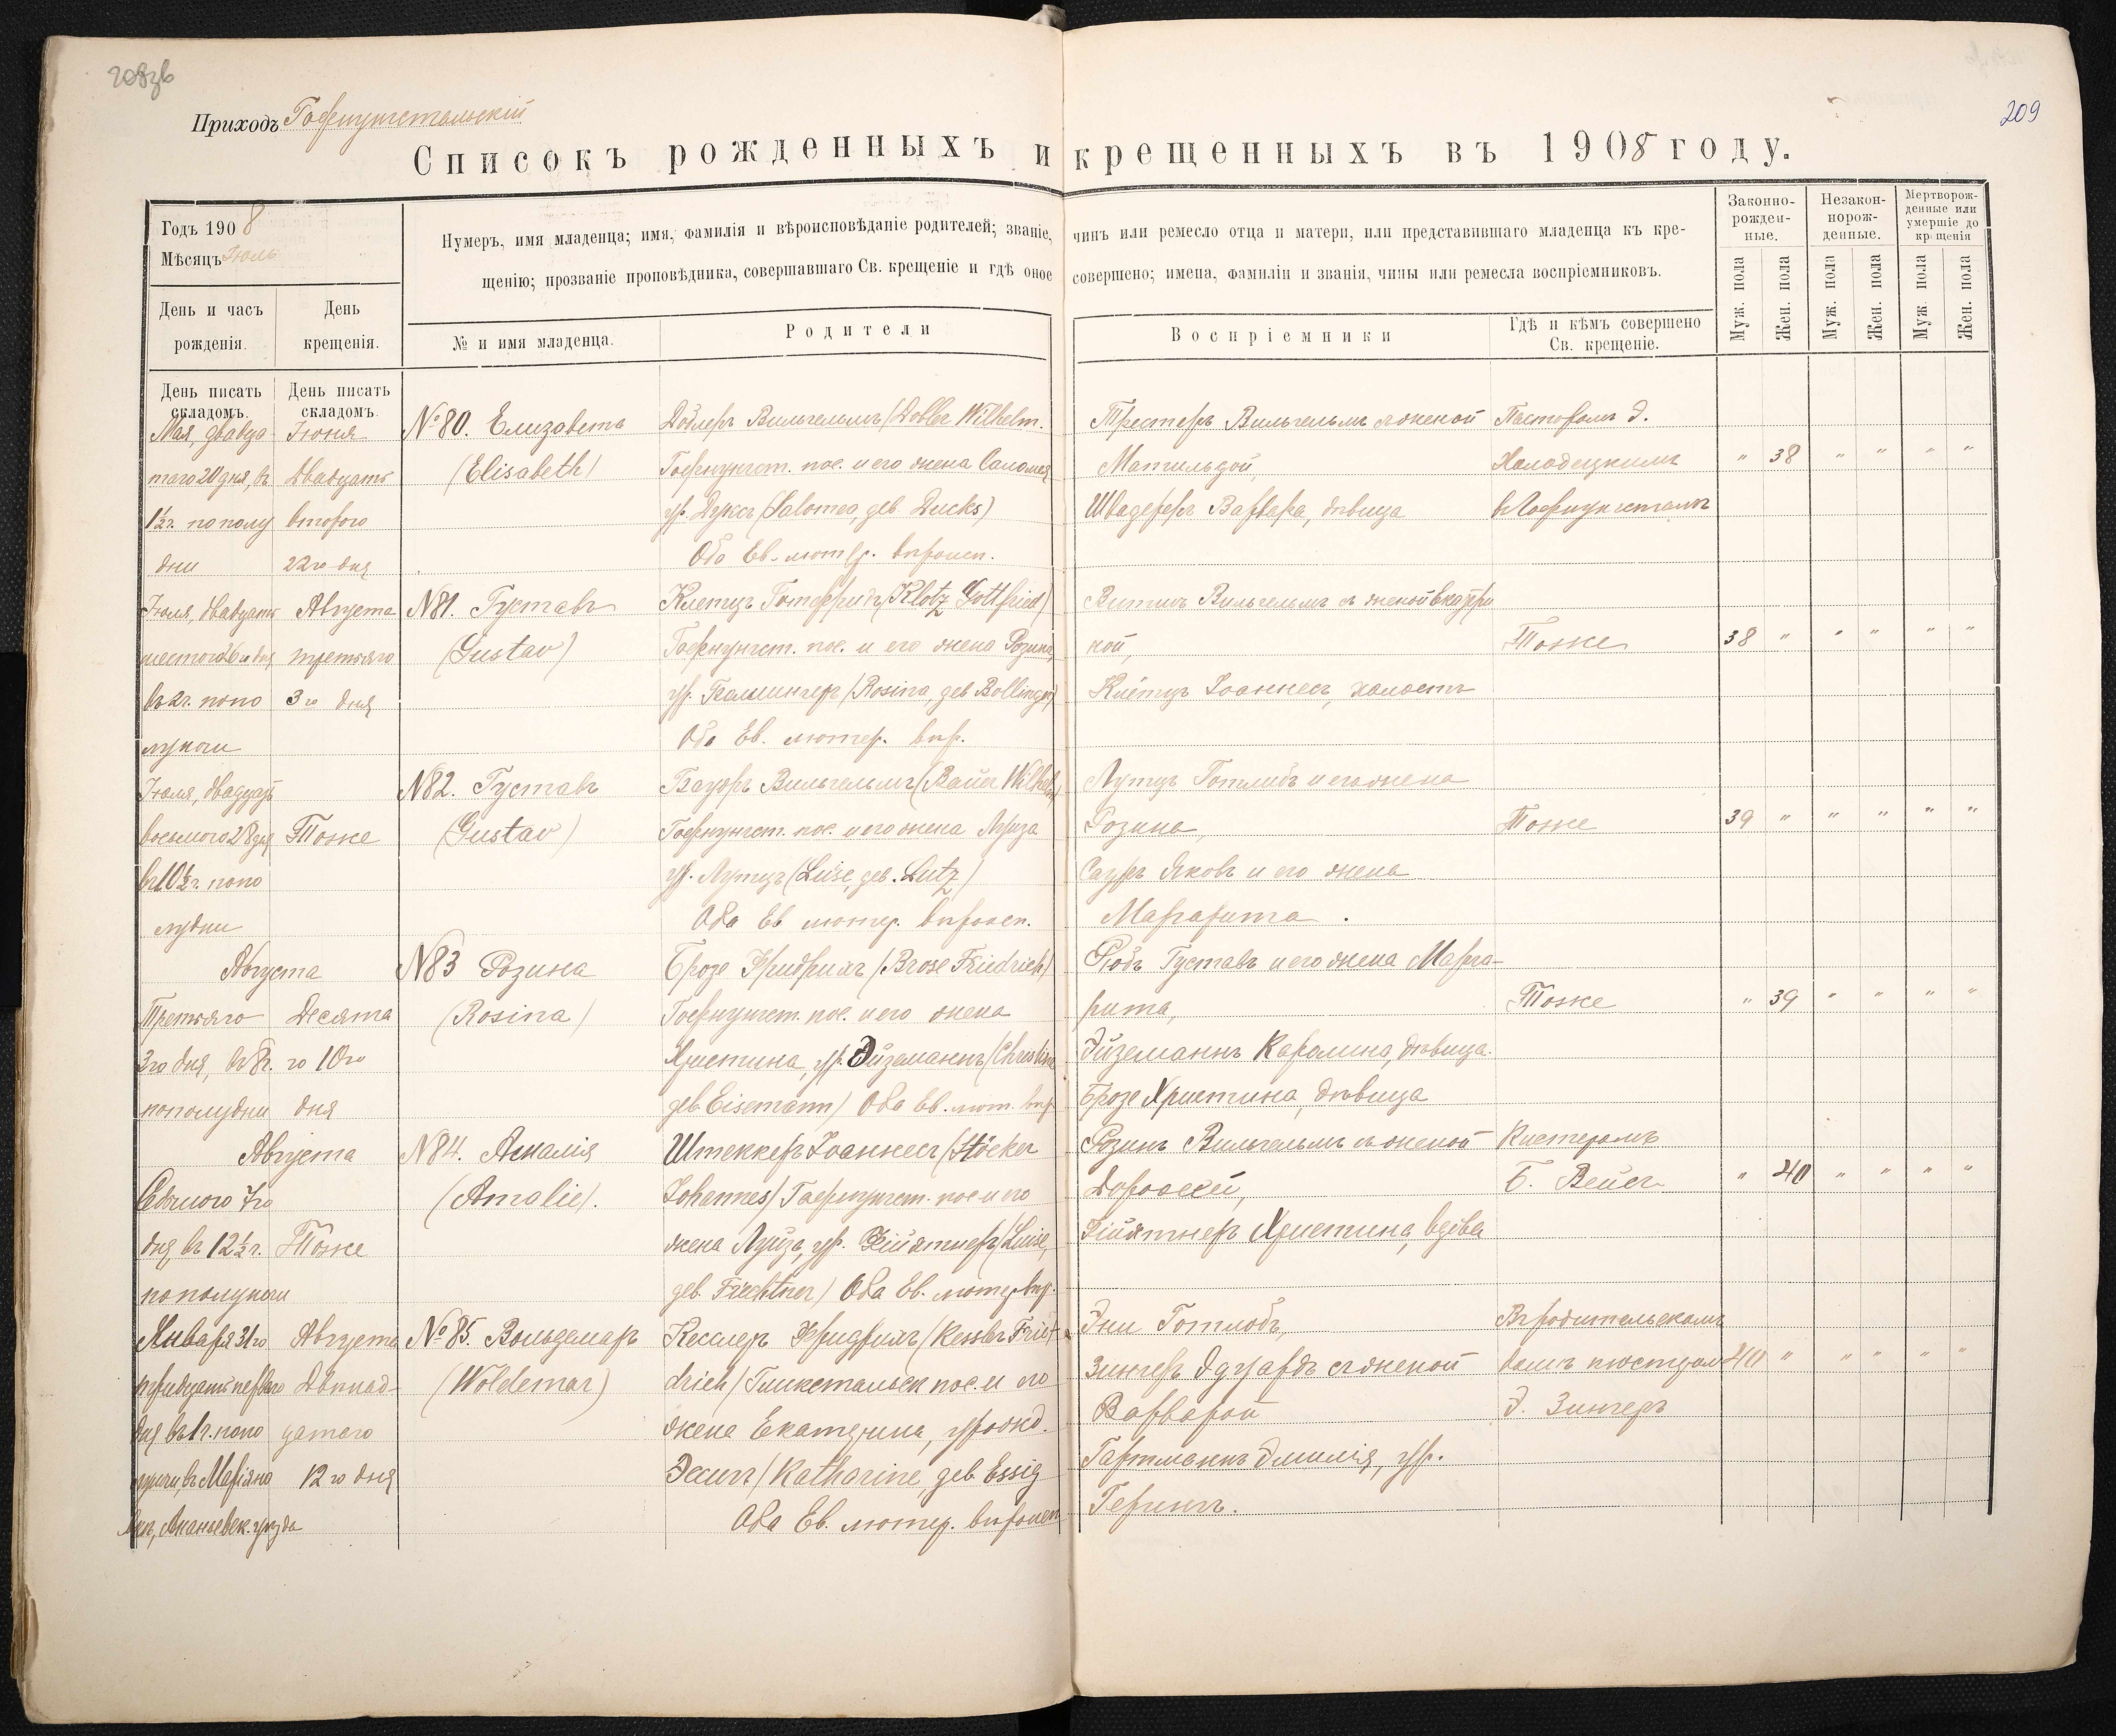 208зв
209
Приходъ Гофнунгстальскій
Списокъ рожденныхъ и крещенныхъ въ 1908 году.
Годъ 1908
Мѣсяцъ Іюль
День и часъ рожденія.
День крещенія.
Нумеръ, имя младенца; имя, фамилія и вѣроисповѣданіе родителей; званіе, чинъ или ремесло отца и матери, или представившаго младенца къ кре-
щенію; прозваніе проповѣдника, совершавшаго Св. крещеніе и гдѣ оное совершено; имена, фамиліи и званія, чины или ремесла воспріемниковъ.
№ и имя младенца.
Родители
Воспріемники
Гдѣ и кѣмъ совершено
Св. крещеніе.
Законно-
рожден-
ные.
Незакон-
норож-
денные.
Мертворож-
денные или
умершіе до
крещенія
Муж. пола
Жен. пола
Муж. пола
Жен. пола
Муж. пола
Жен. пола
День писать
складомъ.
День писать
складомъ.
Мая, двадца-
таго 20 дня, въ
1½ч. пополу
дни
Іюня
двадцать
второго
22го дня
№ 80. Елизавета
(Elisabeth)
Деблеръ Вильгельмъ (Dobler Wilhelm.
Гофнунгст. пос. и его жена Саломея
ур. Дуксъ (Salomea, дев. Ducks)
Оба Ев. лютер. вѣроисп.
Трестеръ Вильгельмъ съ женой
Матильдой,
Швадереръ Варвара, дѣвица
Пасторомъ Э.
Холодецкимъ
въ Гофнунгсталѣ
" 38 " " " "
Іюля, двадцать
шестого 26го дня
въ 2ч. попо
луночи
Августа
третьяго
3го дня
№ 81. Густавъ
(Gustav)
Клетцъ Готфридъ (Klotz Gottfried)
Гофнунгст. пос. и его жена Розина,
ур. Боллингеръ (Rosina, дев. Bollinger)
Оба Ев. лютер. вѣр.
Вильгельмъ съ женой Екатери
ной,
Клётцъ Іоаннесъ, холостъ
Тоже
38 " " " " "
Іюля, двадцать
восьмого 28 дня
въ 10½ч. попо
лудни
Тоже
№ 82. Густавъ
(Gustav)
Бауеръ Вильгельмъ (Bauer Wilhelm)
Гофнунгст. пос. и его жена Луиза
ур. Лутцъ (Luise, дев. Lutz)
Оба Ев. лютер. вѣроисп.
Лутцъ Готлибъ и его жена
Розина,
Сауръ Яковъ и его жена
Маргарита.
Тоже
39 " " " " "
Августа
Третьяго
3го дня, въ 8ч.
пополудни
Десята
го 10го
дня
№ 83 Розина
(Rosina)
Брозе Фридрихъ (Brose Friedrich)
Гофнунгст. пос. и его жена
Христина, ур. Эйземаннъ (Christina
дев. Eisemann) Оба Ев. лют. вѣр.
Рюбъ Густавъ и его жена Марга-
рита,
Эйземаннъ Каролина, дѣвица.
Брозе Христина, дѣвица
Тоже
" 39 " " " "
Августа
Седьмого 7го
дня, въ 12½ч.
пополуночи
Тоже
№ 84. Амалія
(Amalie).
Штеккеръ Іоаннесъ (Stöcker
Johannes) Гофнунгст. пос. и его
жена Луиза, ур. Фійхтнеръ (Luise,
дев. Fiechtner) Оба Ев. лютер. вѣр.
Розинъ Вильгельмъ съ женой
Доротеей,
Фійхтнеръ Христина, вдова
Кистеромъ
Б. Вейсъ
" 40 " " " "
Января 31го
тридцать перваго
дня въ 1ч. попо
луночи, въ Маріяно
вкѣ, Ананьевск. уѣзда
Августа
Двѣнад-
цатаго
12го дня
№ 85. Вольдемаръ
(Woldemar)
Кесслеръ Фридрихъ (Kessler Fried-
drich) Глюкстальск. пос. и его
жена Екатерина, урожд.
Эссигъ (Katharine, дев. Essig
Оба Ев. лютер. вѣроисп.
Готлобъ,
Зингеръ Эдуардъ съ женой
Варварой
Гартманнъ Эмилія, ур.
Герингъ.
Въ родительскомъ
домѣ кюстеромъ
Э. Зингеръ
40 " " " " "